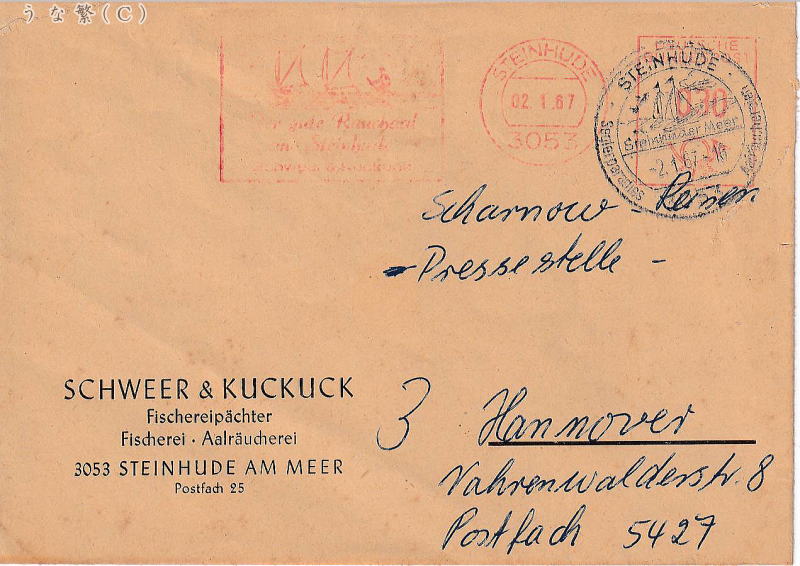 うな繁(C)
STEINHUDE
02.1.67
3053
gute Räucheraal
Steinhude
STEINHUDE
030
Steinhuder Meer
-2.1.67-16
Seglerparadies
Scharnow - Reisen
- Pressestelle -
SCHWEER & KUCKUCK
Fischereipächter
Fischerei · Aalräucherei
3053 STEINHUDE AM MEER
Postfach 25
3 Hannover
Vahrenwalderstr. 8
Postfach 5427